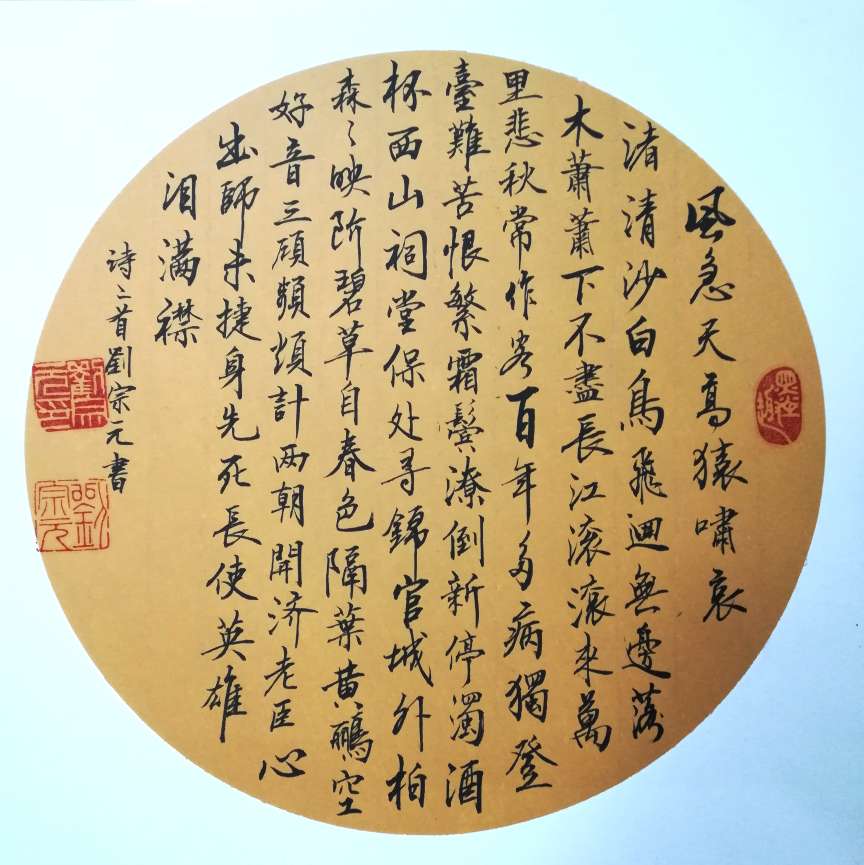 風急天高猿嘯哀
渚清沙白鳥飛迴無邊落
木蕭蕭下不盡長江滚滚来萬
里悲秋常作客百年多病獨登
臺難苦恨繁霜鬓潦倒新停濁酒
杯西山祠堂保处寻錦官城外柏
森々映阶碧草自春色隔葉黄鸝空
好音三顾頻烦計两朝開济老臣心
出師未捷身先死長使英雄
泪满襟
诗二首劉宗元書
劉宗元印
劉宗元